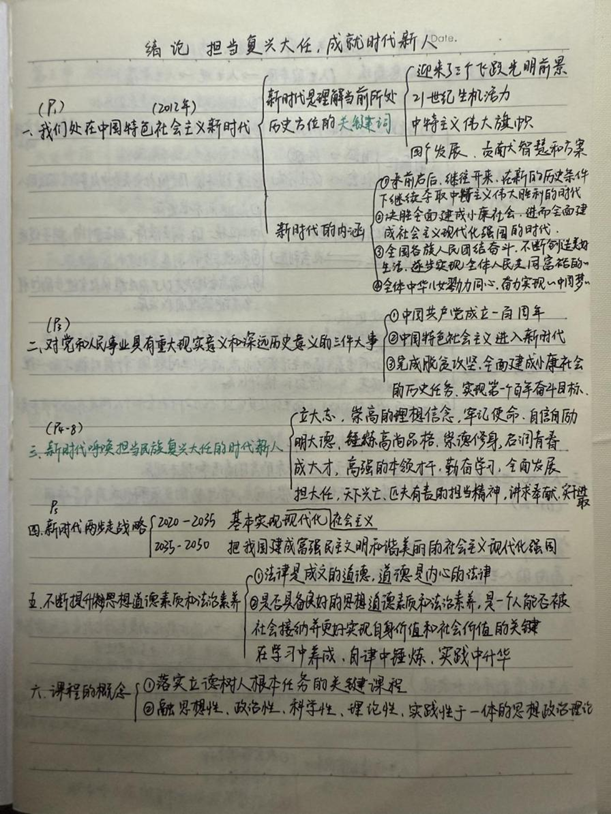 Date.
绪论 担当复兴大任,成就时代新人
(P₁) (2012年)
一、我们处在中国特色社会主义新时代
新时代是理解当前所处
历史方位的关键词
迎来了三个飞跃光明前景
21世纪生机活力
中特主义伟大旗帜
四个发展、贡献犬智慧和方案
新时代的内涵
①承前启后,继往开来,在新的历史条件
下继续夺取中特主义伟大胜利的时代
②决胜全面建成小康社会,进而全面建
成社会主义现代化强国的时代.
③全国各族人民团结奋斗.不断创造美好
生活,逐步实现全体人民共同富裕的〃
④全体中华儿女勠力同心,奋力实现〃中国梦〃
(P₃)
二、对党和人民事业具有重大现实意义和深远历史意义的三件大事
①中国共产党成立一百周年
②中国特色社会主义进入新时代
③完成脱贫攻坚.全面建成小康社会
的历史任务,实现第一个百年奋斗目标.
(P4-8)
三、新时代呼唤担当民族复兴大任的时代新人
立大志,崇高的理想信念,牢记使命,自信自励
明大德,锤炼高尚品格,崇德修身,启润青春
成大才,高强的本领才干,勤奋学习,全面发展
担大任,天下兴亡、匹夫有责的担当精神,讲求奉献,实干进取
P₅
四、新时代两步走战略
2020-2035 基本实现现代化社会主义
2035-2050 把我国建成富强民主文明和谐美丽的社会主义现代化强国
五、不断提升思想道德素质和法治素养
①法律是成文的道德,道德是内心的法律
②是否具备良好的思想道德素质和法治素养,是一个人能否被
社会接纳并更好实现自身价值和社会价值的关键
在学习中养成,自律中锤炼,实践中升华
六、课程的概念
①落实立德树人根本任务的关键课程
②融思想性、政治性、科学性、理论性、实践性于一体的思想政治理论